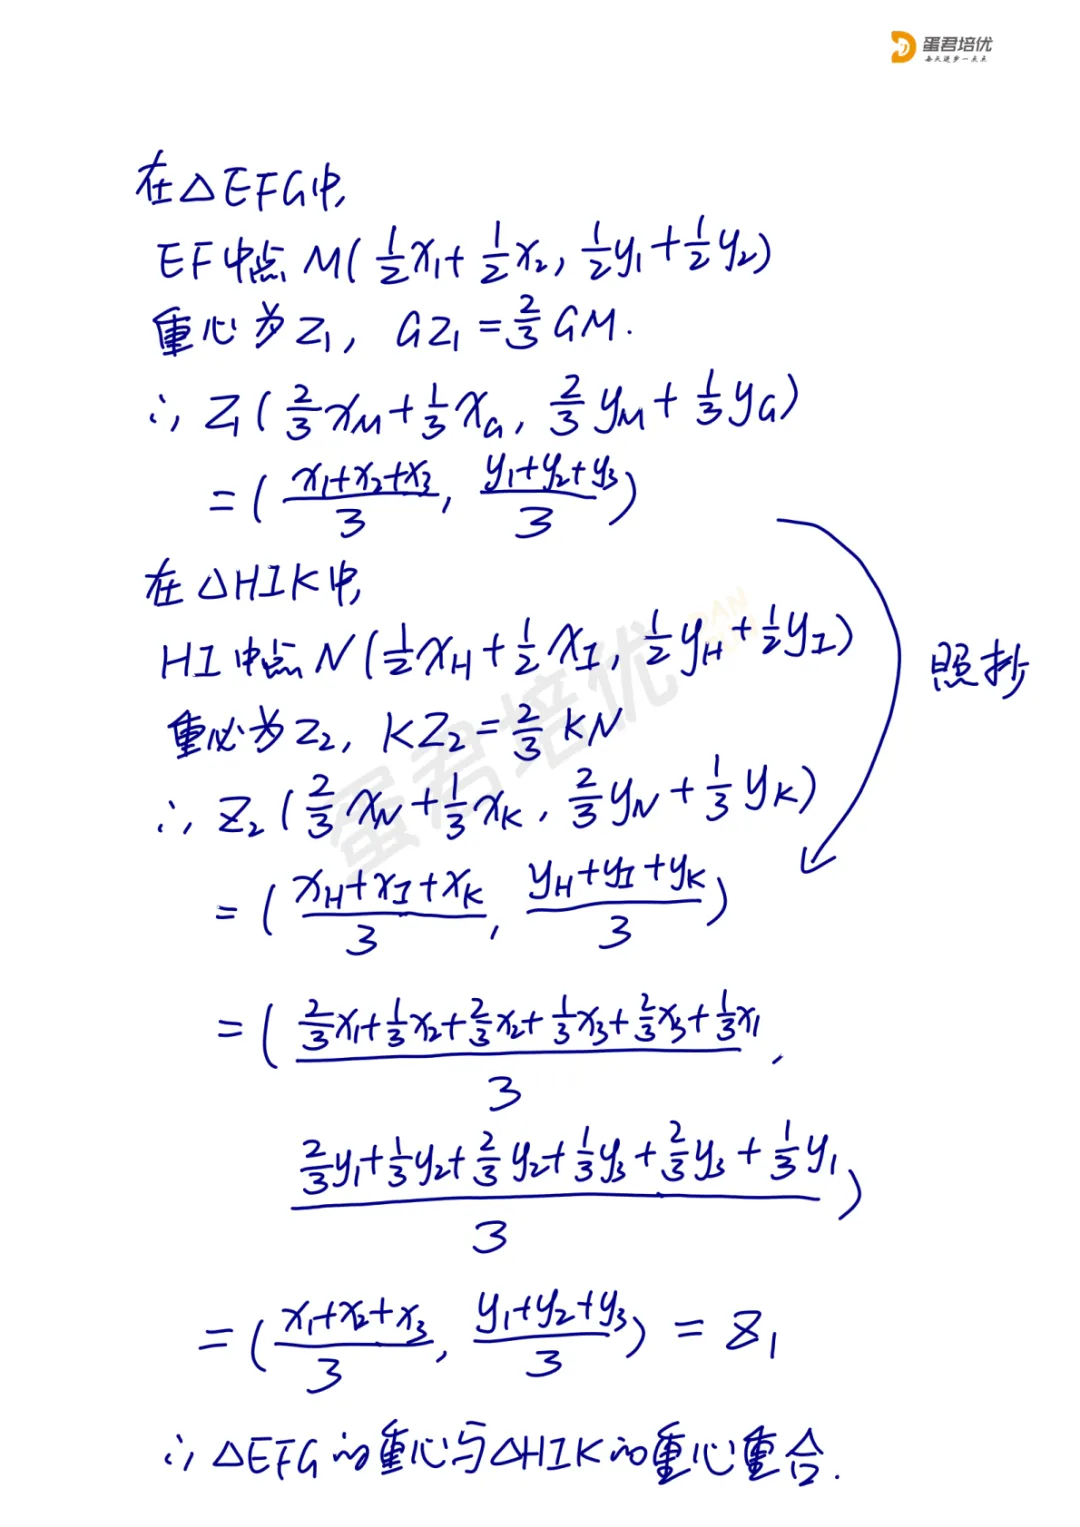 蛋君培优
每天进步一点点
在△EFG中,
EF中点 M(1/2x₁+1/2x₂, 1/2y₁+1/2y₂)
重心为Z₁, GZ₁=2/3GM.
∴ Z₁(2/3x_M+1/3x_G, 2/3y_M+1/3y_G)
=((x₁+x₂+x₃)/3, (y₁+y₂+y₃)/3)
在△HIK中,
HI中点N(1/2x_H+1/2x_I, 1/2y_H+1/2y_I)
照抄
重心为Z₂, KZ₂=2/3KN
∴ Z₂(2/3x_N+1/3x_K, 2/3y_N+1/3y_K)
=((x_H+x_I+x_K)/3, (y_H+y_I+y_K)/3)
=((2/3x₁+1/3x₂+2/3x₂+1/3x₃+2/3x₃+1/3x₁)/3,
(2/3y₁+1/3y₂+2/3y₂+1/3y₃+2/3y₃+1/3y₁)/3)
=((x₁+x₂+x₃)/3, (y₁+y₂+y₃)/3)=Z₁
∴ △EFG的重心与△HIK的重心重合.
蛋君培优